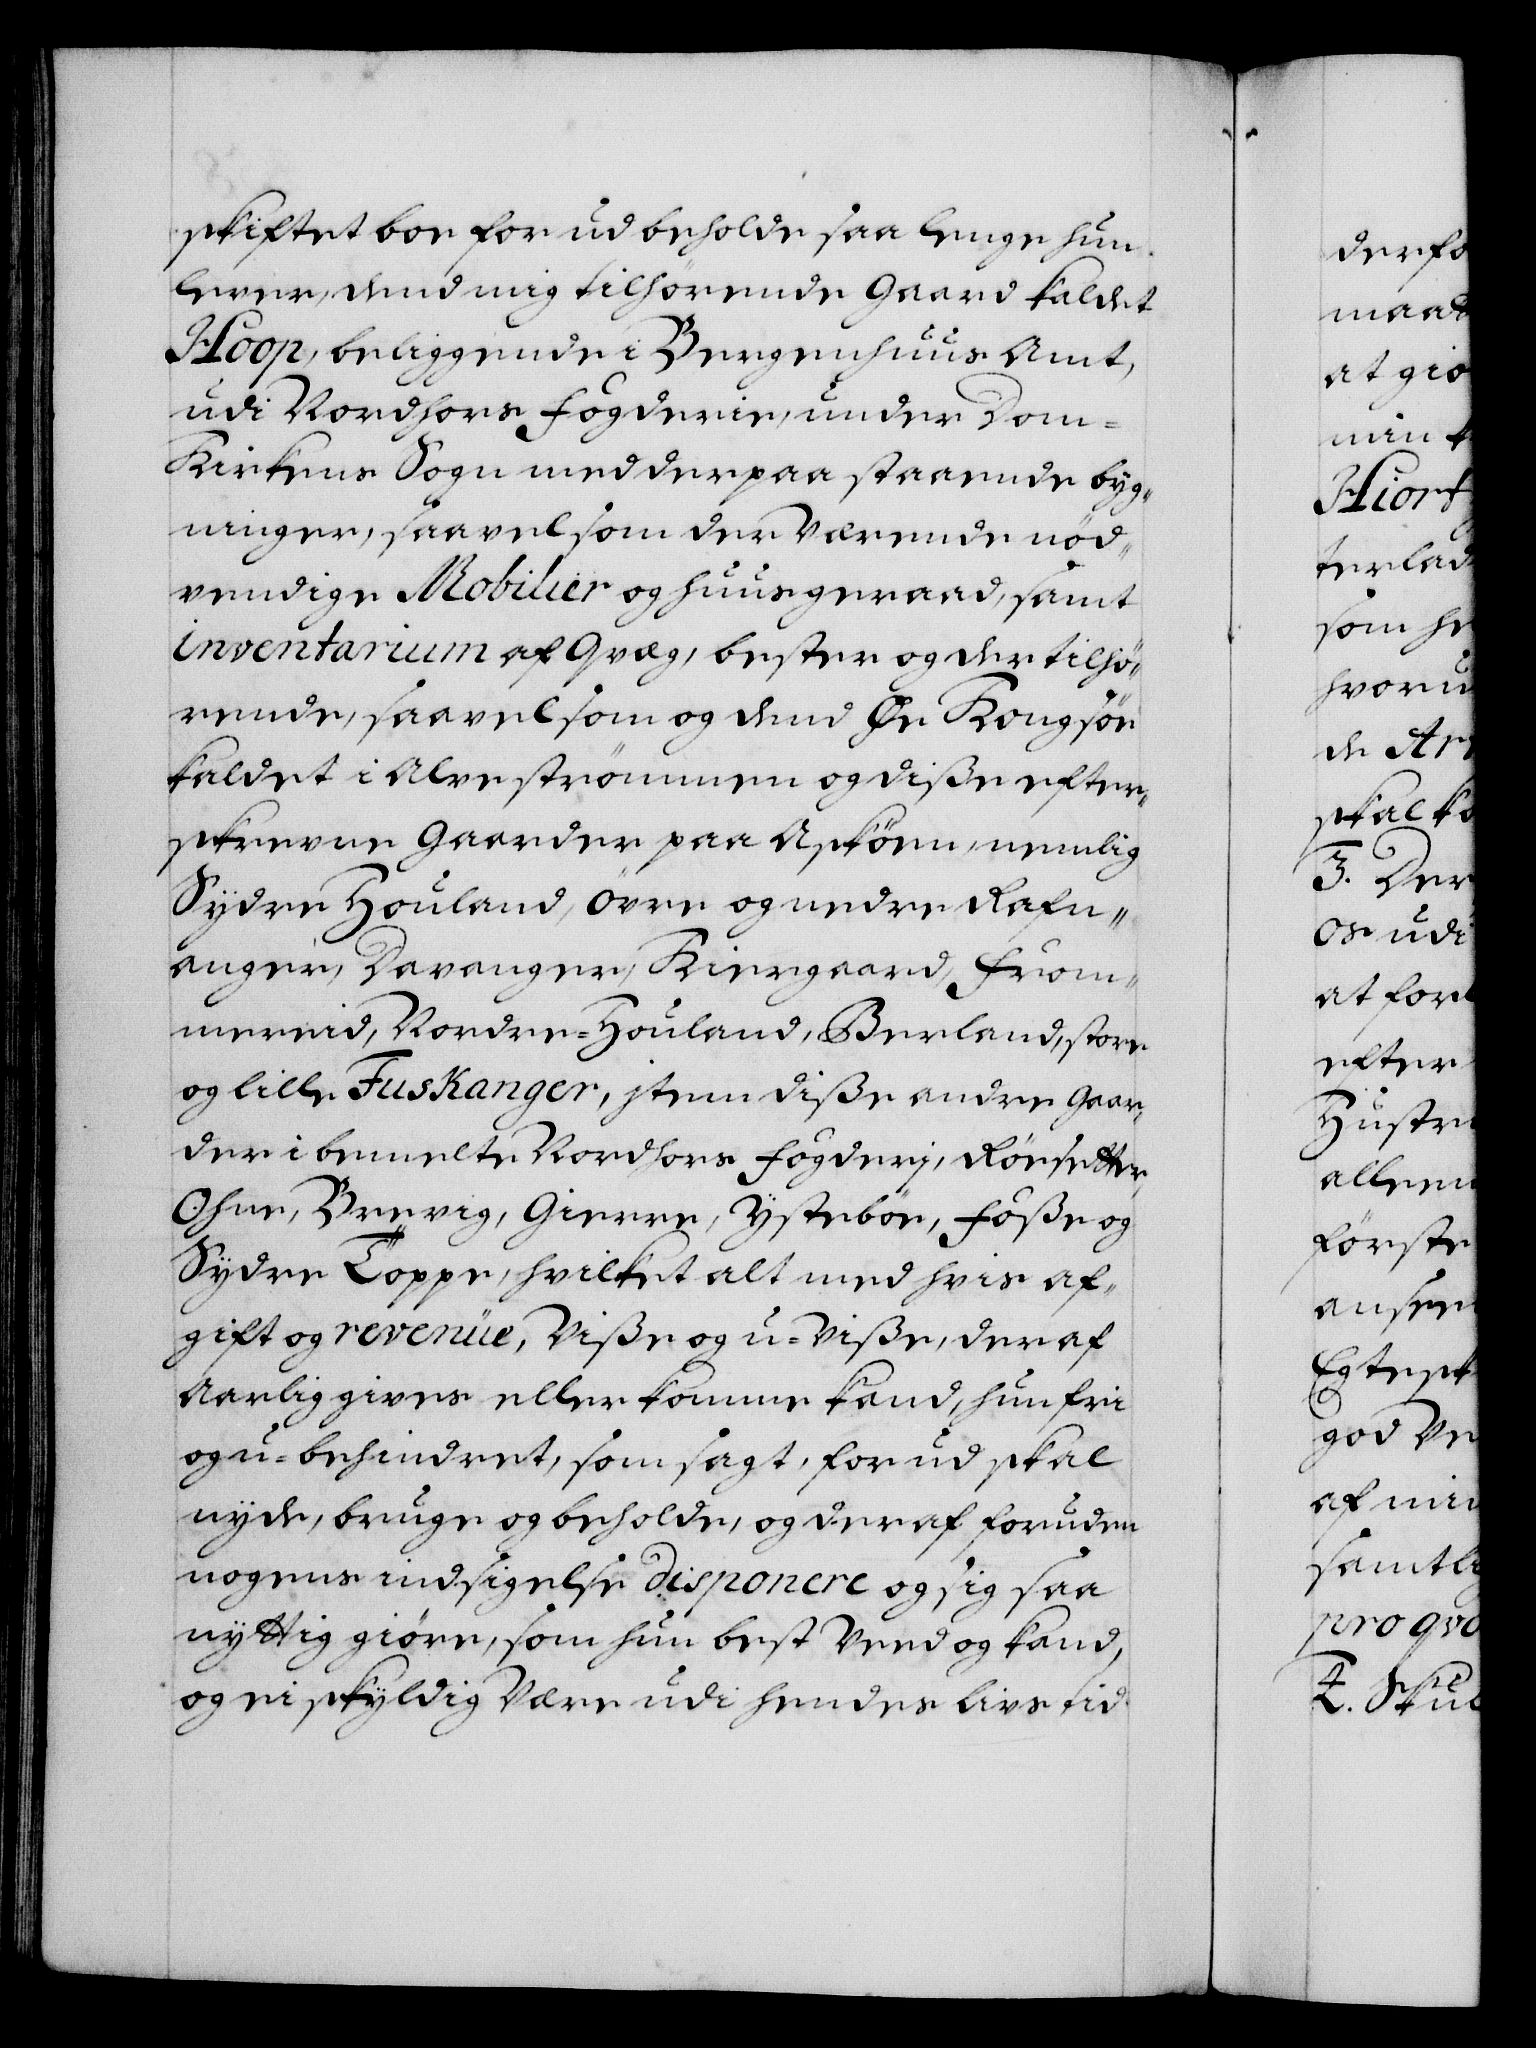 skiftet boe forud beholde saa lenge hun
lever, dend mig tilhörende Gaard kaldet
Hoop, beliggende i Bergenhuus Amt,
udi Nordhors Fogderie, under Dom=
Kirkens Sogn med derpaa staaende byg„
ninger, saavelsom der Værende nöd„
vendige Mobilier og huusgeraad, samt
inventarium af Qvæg, bester og der tilhö„
rende, saavelsom og dend Øe Kongsöe
kaldet i Alveströmmen og diße efter„
skrevne Gaarder paa Asköen, nemlig
Sydre Houland, övre og nedre Rafn„
anger, Davanger, Kiergaard, From„
mereid, Nordre=Houland, Berland, store
og lille Fuskanger, jtem diße andre Gaar„
der i bemelte Nordhors Fogderj, Röesetter,
Ohne, Brevig, Gierre, Ysteböe, Foße og
Sydre Toppe, hvilket alt med hvis af„
gift og revenüe, Viße og u=Viße, deraf
Aarlig gives eller komme kand, hun frie
og u=behindret, som sagt, forud skal
nyde, bruge og beholde, og deraf foruden
nogens indsigelse disponere og sig saa
nyttig giöre, som hun best Veed og kand,
og ei skyldig Være udi hendes livs tid
derfo
maad
at giö
min
Hiort
terlad
som he
hvoru
de Ar
skal ko
3. Der
os udi
at for
efter
Hustru
alleen
förste
anseen
Egtesk
god Ve
af min
samtli
pro qvo
4. Skul